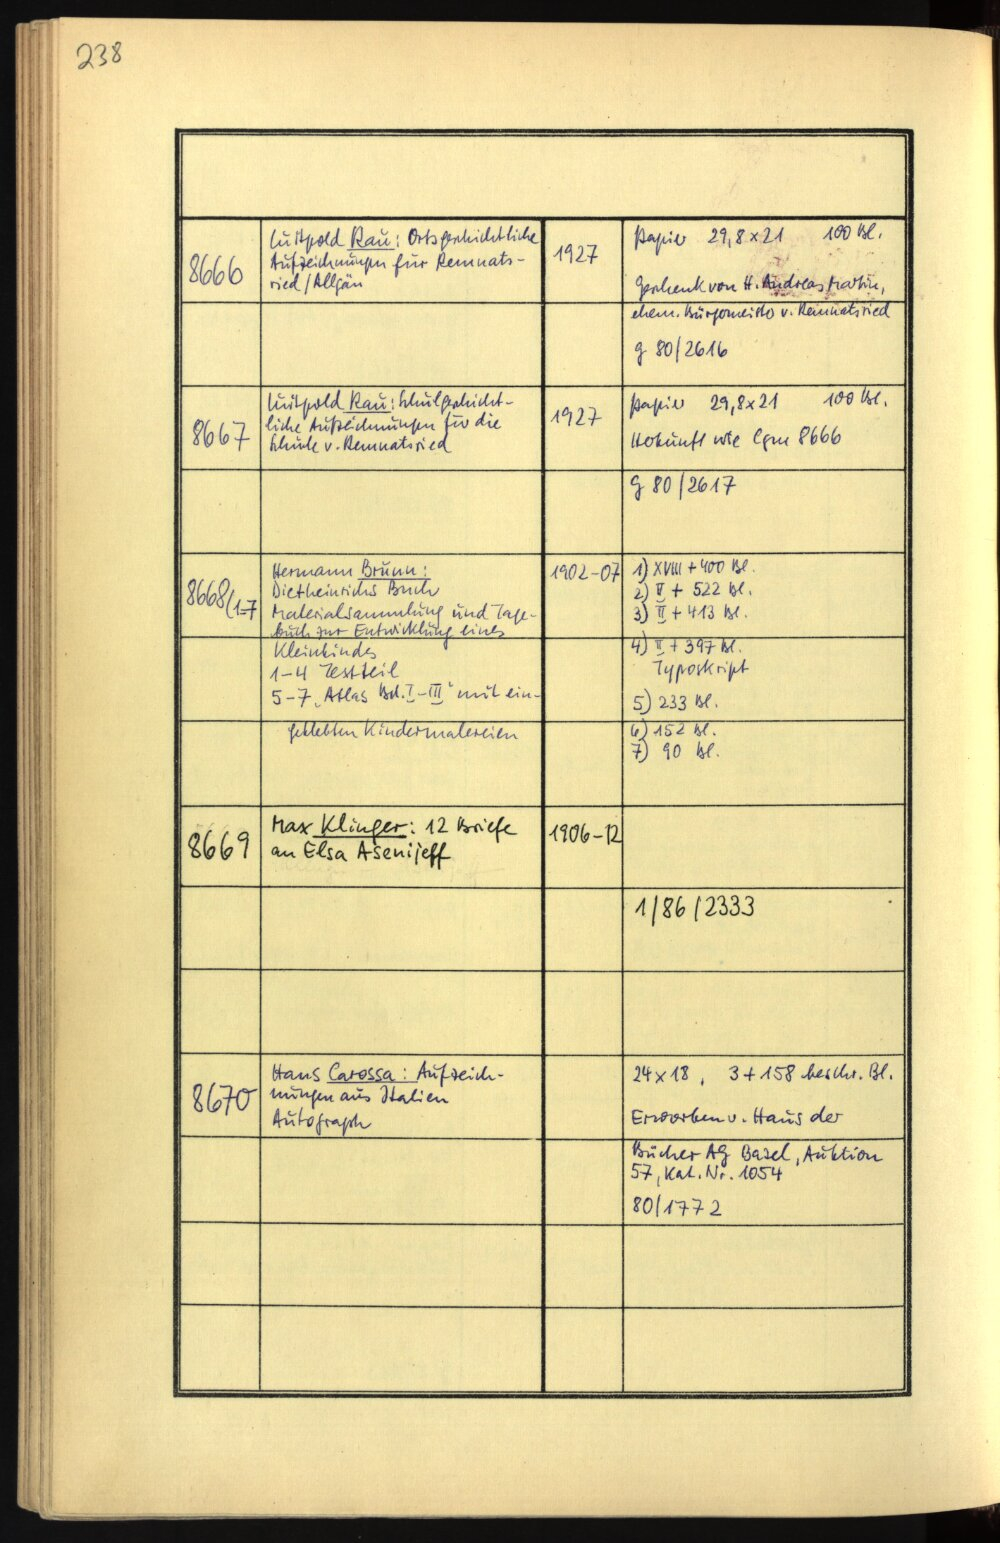 238
8666
Luitpold Rau: Ortsgeschichtliche
Aufzeichnungen für Remnats-
ried/Allgäu
1927
Papier 29,8 x 21 100 Bl.
Geschenk von H. Andreas Martin,
ehem. Bürgermeister v. Remnatsried
g 80/2616
8667
Luitpold Rau: Schulgeschicht-
liche Aufzeichnungen für die
Schule v. Remnatsried
1927
Papier 29,8 x 21 100 Bl.
Herkunft wie Cgm 8666
g 80/2617
8668/1-7
Hermann Brunn:
Dietheinrichs Buch
Materialsammlung und Tage-
buch zur Entwicklung eines
Kleinkindes
1-4 Textteil
5-7 „Atlas Bd. I-III" mit ein-
geklebten Kindermalereien
1902-07
1) XVIII + 400 Bl.
2) II + 522 Bl.
3) II + 413 Bl.
4) II + 397 Bl.
Typoskript
5) 233 Bl.
6) 152 Bl.
7) 90 Bl.
8669
Max Klinger: 12 Briefe
an Elsa Asenijeff
1906-12
1/86/2333
8670
Hans Carossa: Aufzeich-
nungen aus Italien
Autograph
24 x 18, 3 + 158 beschr. Bl.
Erworben v. Haus der
Bücher AG Basel, Auktion
57, Kat. Nr. 1054
80/1772